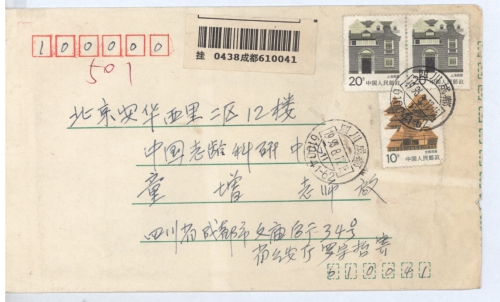 100000
501
挂 0438成都610041
20分
中国人民邮政
中国人民邮政
10分
中国人民邮政
四川成都
北京安华西里二区12楼
中国老龄科研中
童增 老师 收
四川省成都市文庙后街34号
省公安厅 罗宇哲寄
610041